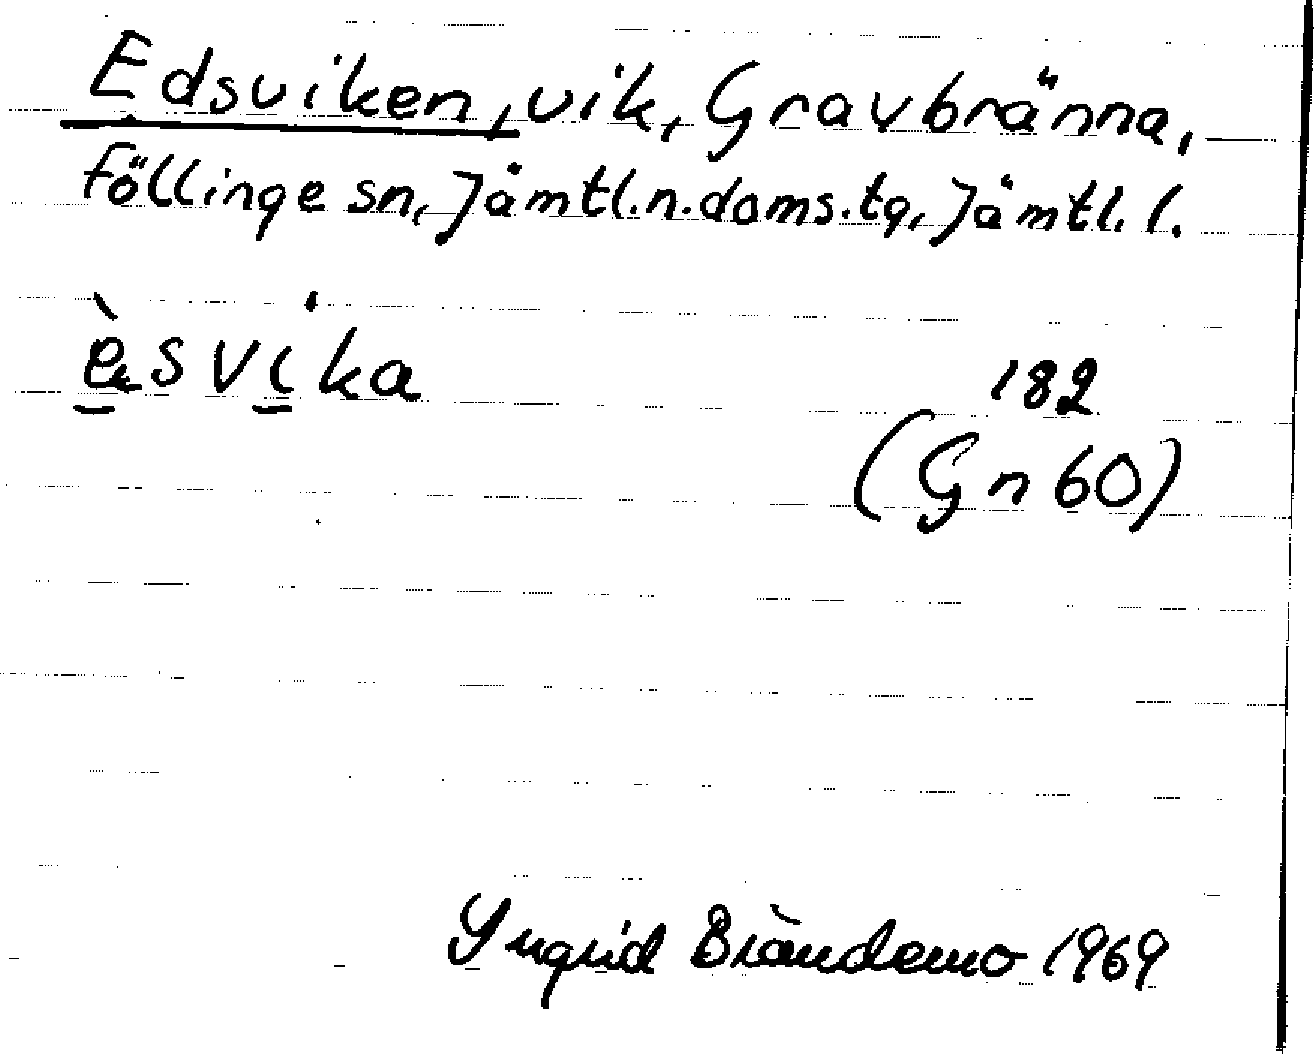 Edsviken, vik, Gravbränna,
Föllinge sn, Jämtl.n.doms.tg, Jämtl. l.
è̱svi̱ka
182
(Gn 60)
Yngrid Brändemo 1969